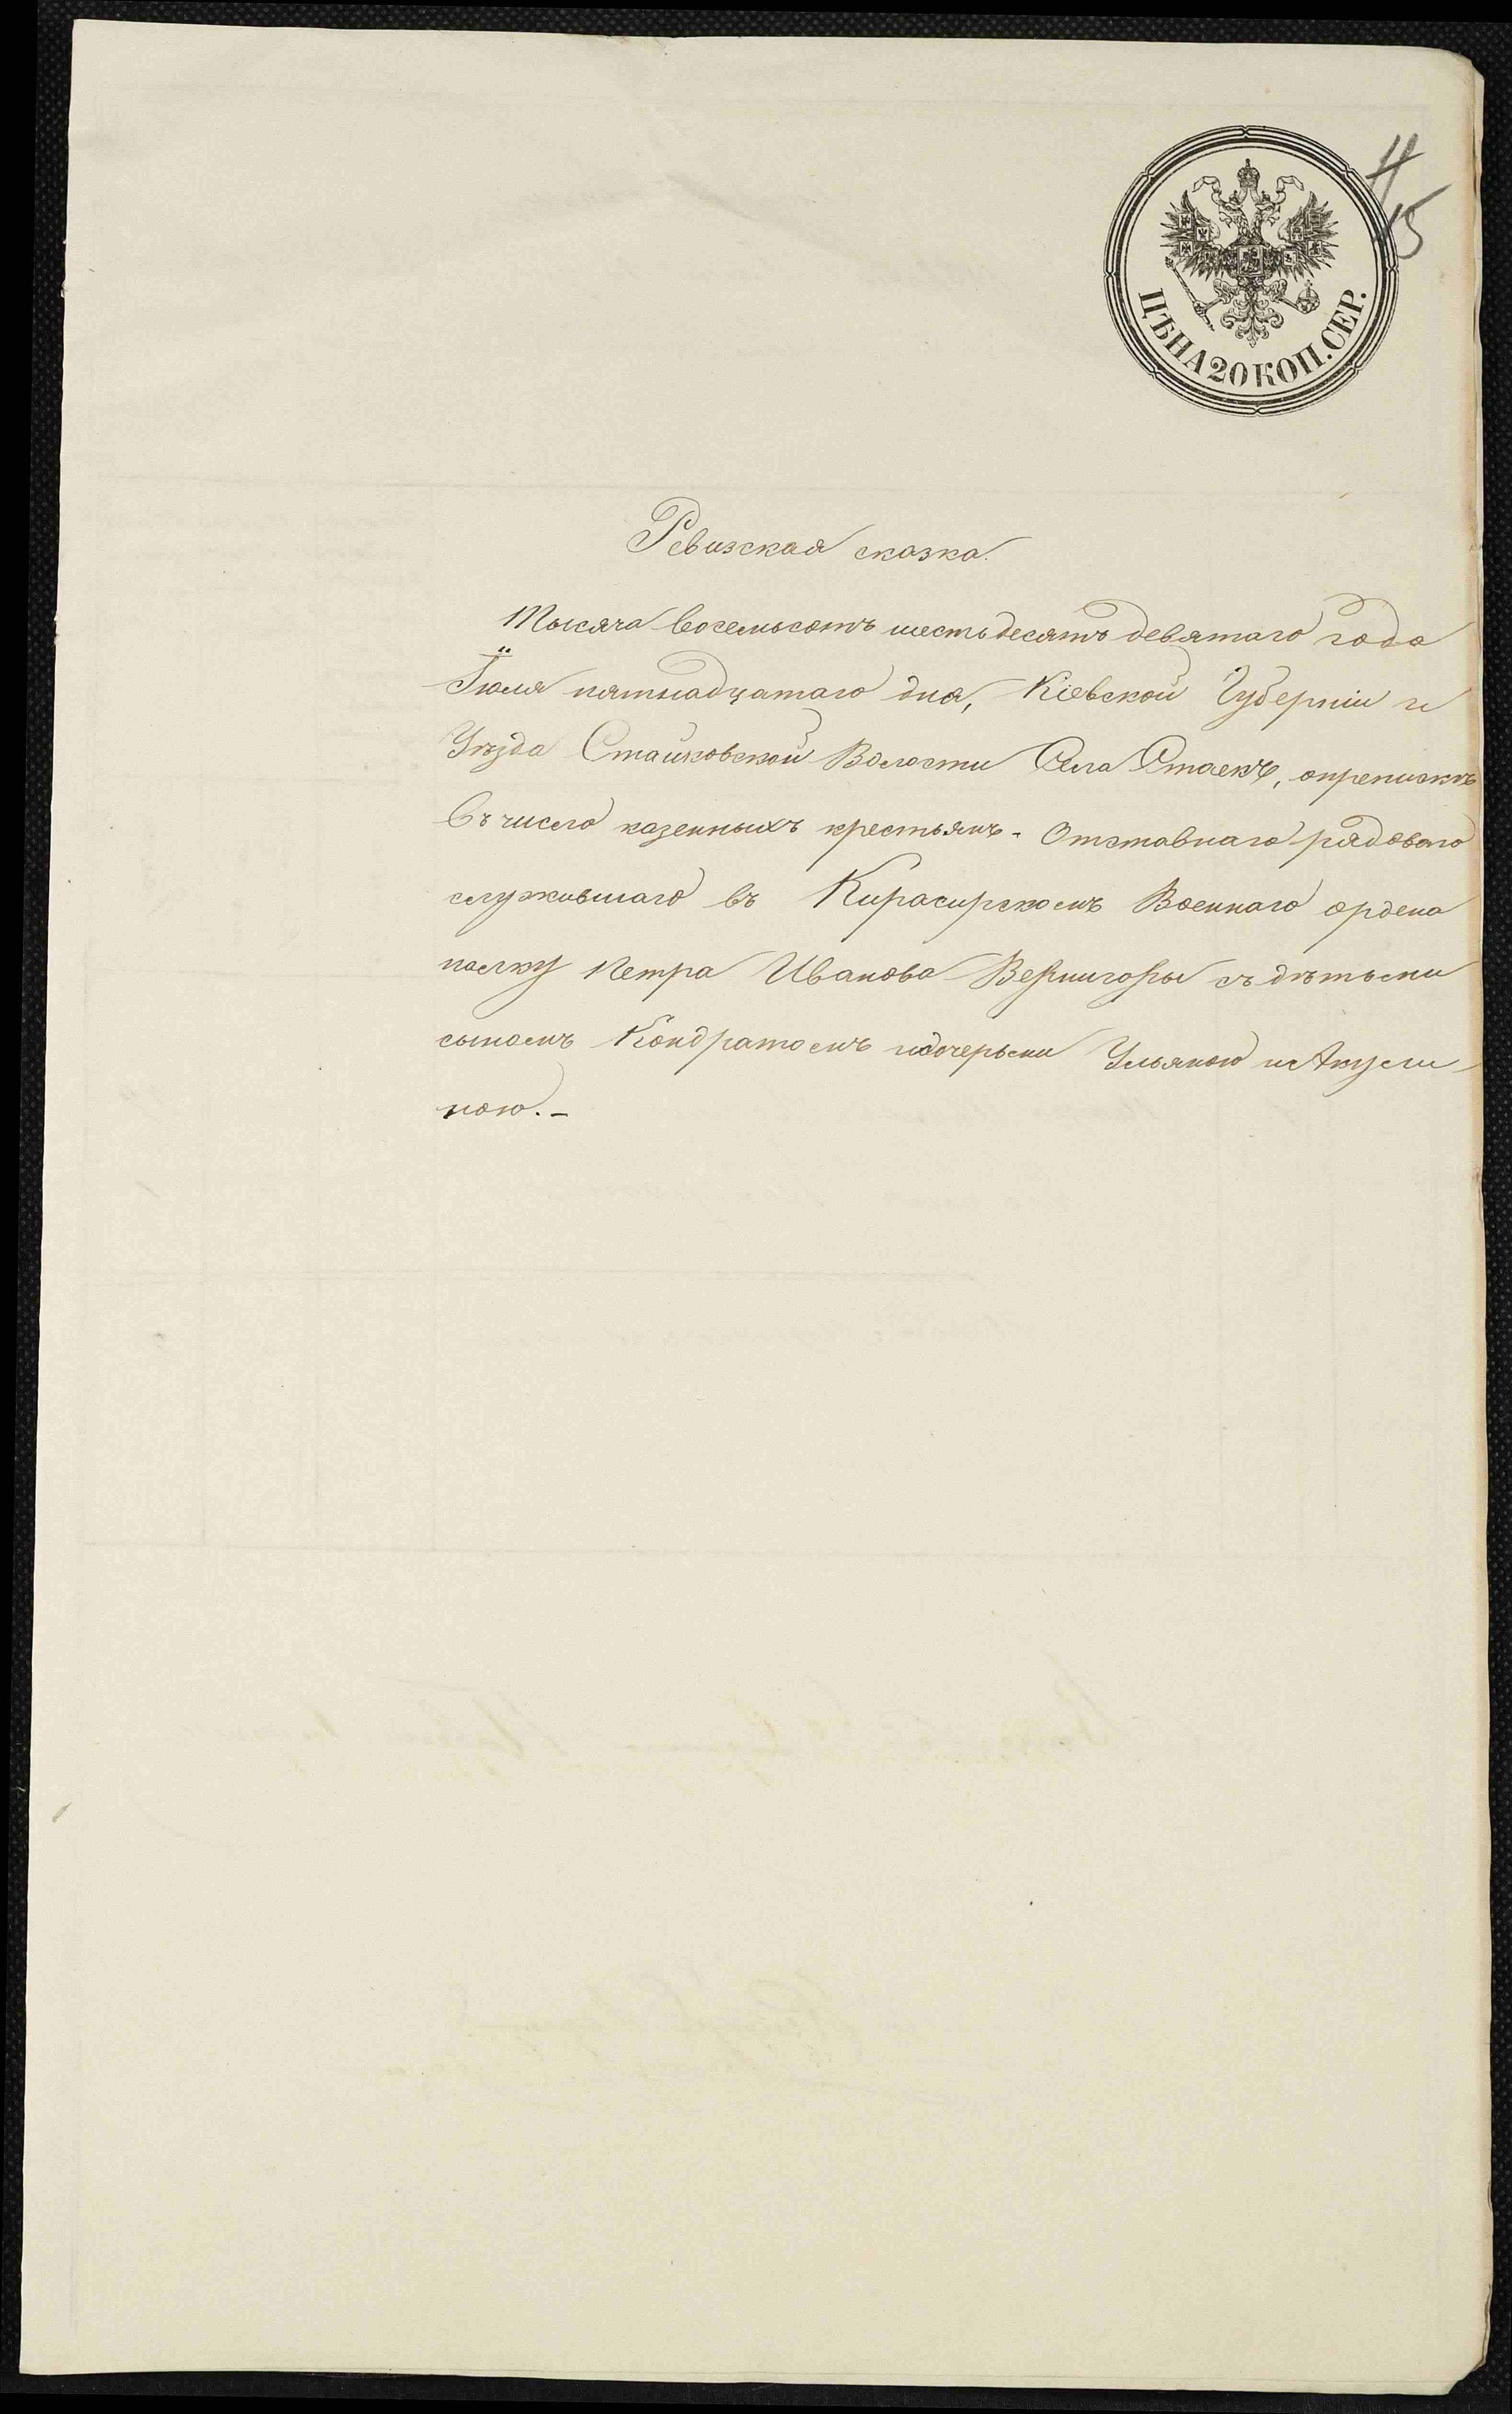 4
15
ЦѢНА 20 КОП. СЕР.
Ревизская сказка.
Тысяча восемьсотъ шестьдесятъ девятаго года
Іюля пятнадцатаго дня, Кіевской Губерніи и
Уѣзда Стайковской Волости Села Стаекъ, опрепискѣ
въ число казенныхъ крестьянъ - Отставнаго рядоваго
служившаго въ Кирасирскомъ Военнаго ордена
полку Петра Иванова Вернигоры съ дѣтьми
сыномъ Кондратомъ и дочерьми Ульяною и Акули-
ною. -